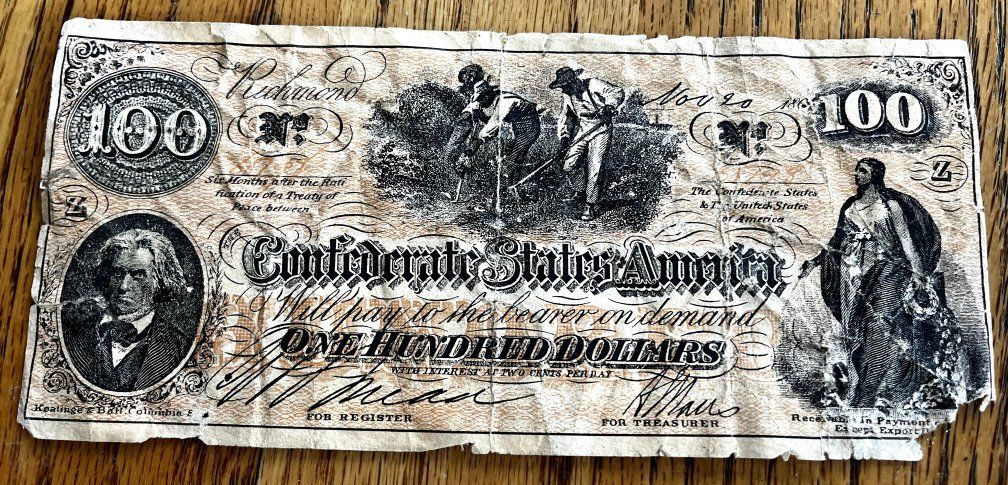 100
Richmond
Nov 20
186
100
No.
No.
Z
Z
Six Months after the Rati
fication of a Treaty of
Peace between
The Confederate States
& The United States
of America
Confederate States America
Will pay to the bearer on demand
ONE HUNDRED DOLLARS
WITH INTEREST AT TWO CENTS PER DAY
FOR REGISTER
FOR TREASURER
Keatinge & Ball Columbia S
Receivable In Payment
Except Export